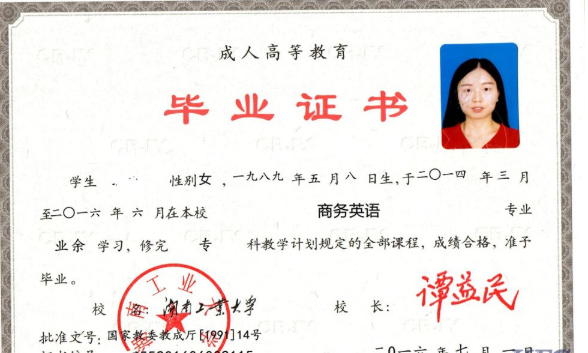 成人高等教育
毕业证书
学生 性别女，一九八九年五月八日生，于二〇一四年三月
至二〇一六年六月在本校 商务英语 专业
业余 学习，修完 专 科教学计划规定的全部课程，成绩合格，准予
毕业。
校 名：湖南工业大学 校 长：谭益民
批准文号：国家教委教成厅[1991]14号
二〇一六年七月